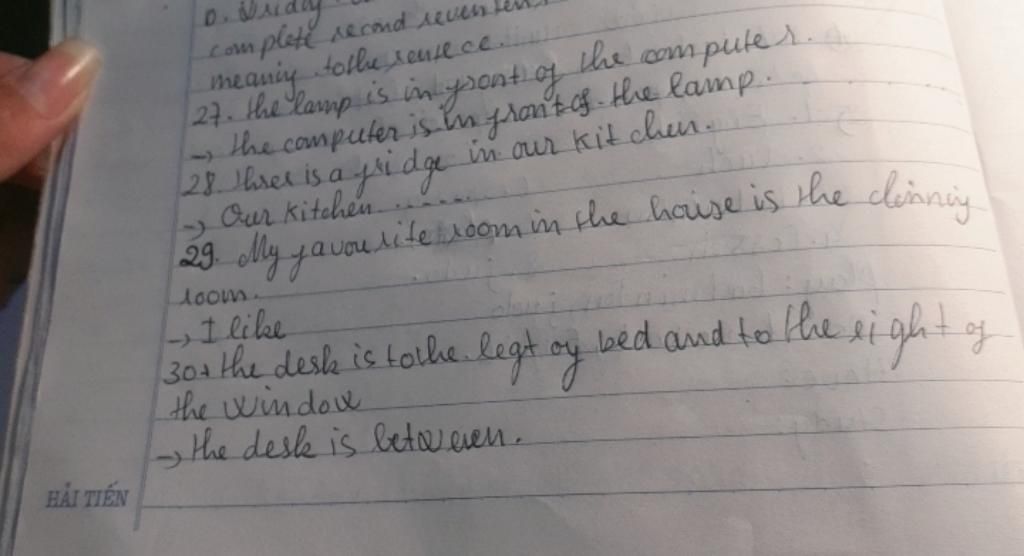 complete second
meaning to the sentece.
27. the lamp is in front of the computer.
→ the computer is in front of the lamp.
28. there is a fridge in our kitchen.
→ Our kitchen .......
29. My favourite room in the house is the dinning
room.
→ I like
30. the desk is to the left of bed and to the right of
the window
→ the desk is between.
HẢI TIẾN